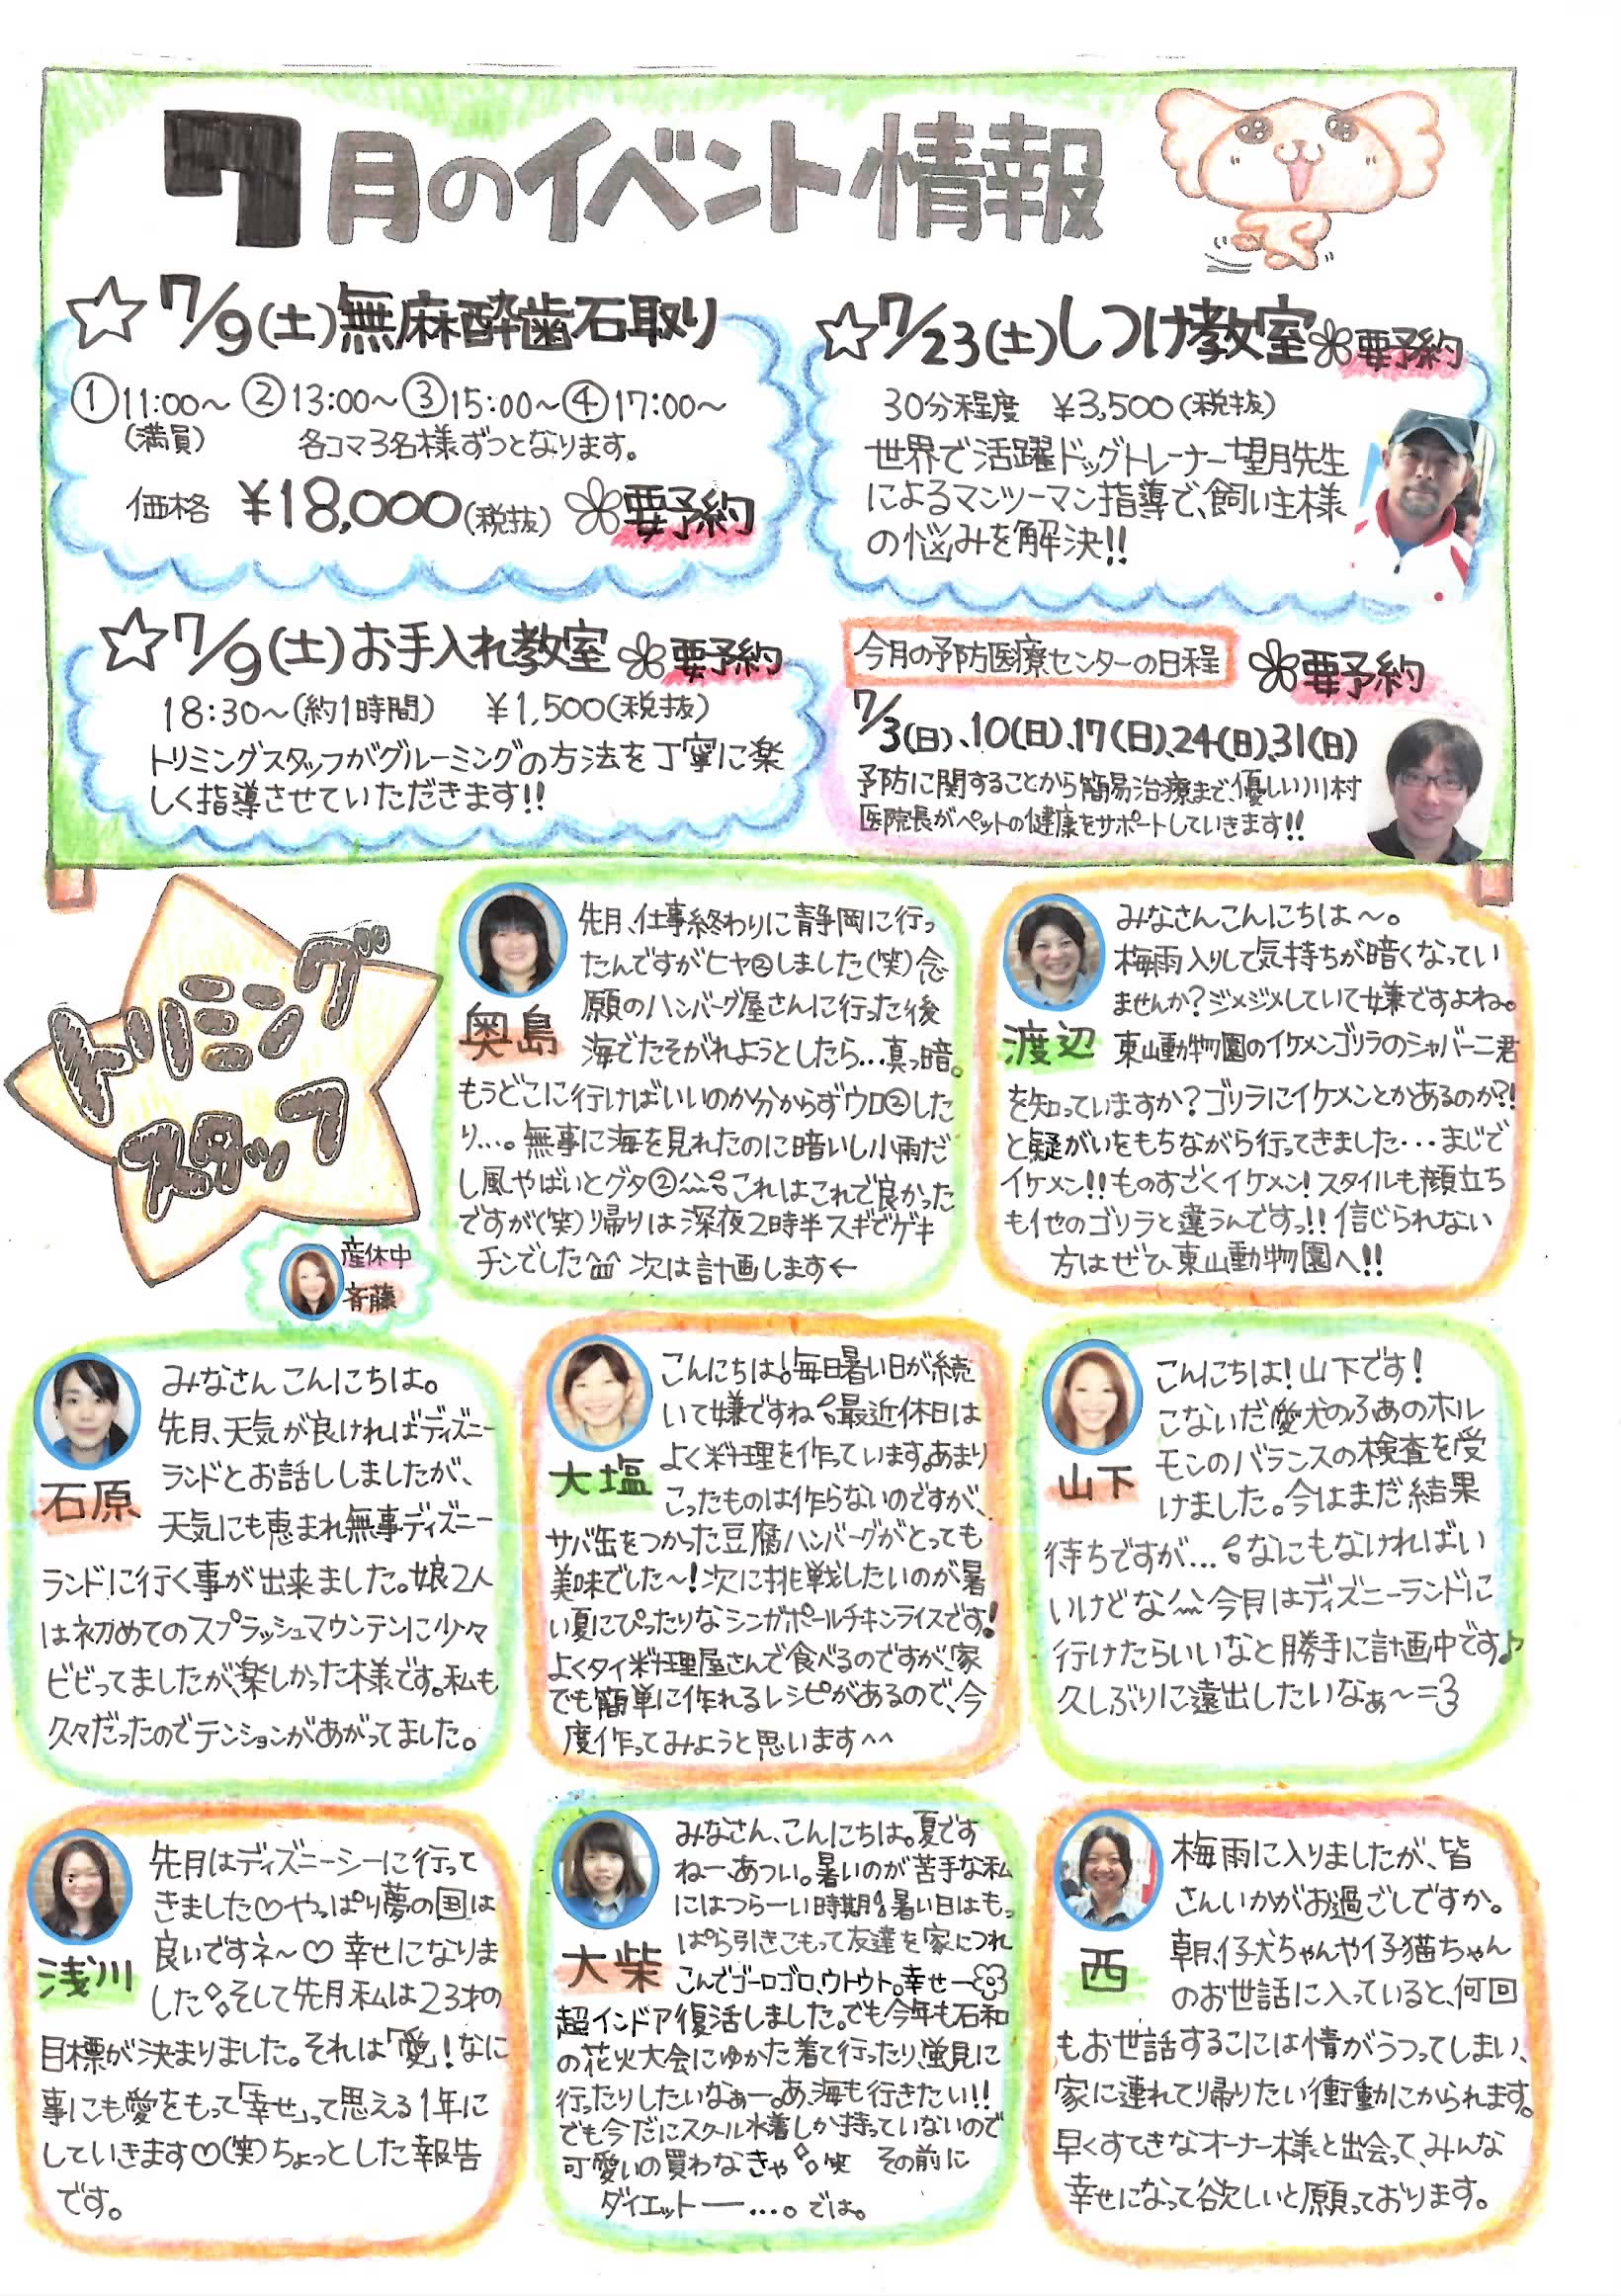 7月のイベント情報
☆7/9(土)無麻酔歯石取り
①11:00～ ②13:00～ ③15:00～ ④17:00～
(満員) 各コマ3名様ずつとなります。
価格 ¥18,000(税抜) 要予約
☆7/23(土)しつけ教室 要予約
30分程度 ¥3,500(税抜)
世界で活躍ドッグトレーナー望月先生
によるマンツーマン指導で、飼い主様
の悩みを解決!!
☆7/9(土)お手入れ教室 要予約
18:30～(約1時間) ¥1,500(税抜)
トリミングスタッフがグルーミングの方法を丁寧に楽
しく指導させていただきます!!
今月の予防医療センターの日程 要予約
7/3(日)、10(日)、17(日)、24(日)、31(日)
予防に関することから簡易治療まで、優しい川村
医院長がペットの健康をサポートしていきます!!
トリミング
スタッフ
産休中
斉藤
奥島
先月、仕事終わりに静岡に行っ
たんですがヒヤ②しました(笑)念
願のハンバーグ屋さんに行った後
海でたそがれようとしたら…真っ暗。
もうどこに行けばいいのか分からずウロ②した
り…。無事に海を見れたのに暗いし小雨だ
し風やばいとグタ② これはこれで良かった
ですが(笑)帰りは深夜2時半スギでゲキ
チンでした 次は計画します←
渡辺
みなさんこんにちは～。
梅雨入りして気持ちが暗くなってい
ませんか？ジメジメしていて嫌ですよね。
東山動物園のイケメンゴリラのシャバーニ君
を知っていますか？ゴリラにイケメンとかあるのか?!
と疑がいをもちながら行ってきました…まじで
イケメン!!ものすごくイケメン!スタイルも顔立ち
も他のゴリラと違うんですっ!!信じられない
方はぜひ東山動物園へ!!
石原
みなさんこんにちは。
先月、天気が良ければディズニー
ランドとお話ししましたが、
天気にも恵まれ無事ディズニー
ランドに行く事が出来ました。娘2人
は初めてのスプラッシュマウンテンに少々
ビビってましたが、楽しかった様です。私も
久々だったのでテンションがあがってました。
大塩
こんにちは!毎日暑い日が続
いて嫌ですね 最近休日は
よく料理を作っています。あまり
こったものは作らないのですが、
サバ缶をつかった豆腐ハンバーグがとっても
美味でした～!次に挑戦したいのが暑
い夏にぴったりなシンガポールチキンライスです!
よくタイ料理屋さんで食べるのですが、家
でも簡単に作れるレシピがあるので、今
度作ってみようと思います^^
山下
こんにちは!山下です!
こないだ愛犬のふあのホル
モンのバランスの検査を受
けました。今はまだ結果
待ちですが… なにもなければい
いけどな 今月はディズニーランドに
行けたらいいなと勝手に計画中です♪
久しぶりに遠出したいなぁ～=3
浅川
先月はディズニーシーに行って
きました♡やっぱり夢の国は
良いですネ～♡ 幸せになりま
した そして先月私は23才の
目標が決まりました。それは「愛」!なに
事にも愛をもって「幸せ」って思える1年に
していきます♡(笑)ちょっとした報告
です。
大柴
みなさん、こんにちは。夏です
ねー、あつい。暑いのが苦手な私
にはつらーい時期 暑い日はもっ
ぱら引きこもって友達を家につれ
こんでゴーロゴロ、ウトウト。幸せー
超インドア復活しました。でも今年も石和
の花火大会にゆかた着て行ったり、蛍見に
行ったりしたいなぁー。あ、海も行きたい!!
でも今だにスクール水着しか持っていないので
可愛いの買わなきゃ 笑 その前に
ダイエットー…。では。
西
梅雨に入りましたが、皆
さんいかがお過ごしですか。
朝、仔犬ちゃんや仔猫ちゃん
のお世話に入っていると、何回
もお世話するこには情がうつってしまい、
家に連れて帰りたい衝動にかられます。
早くすてきなオーナー様と出会って、みんな
幸せになって欲しいと願っております。